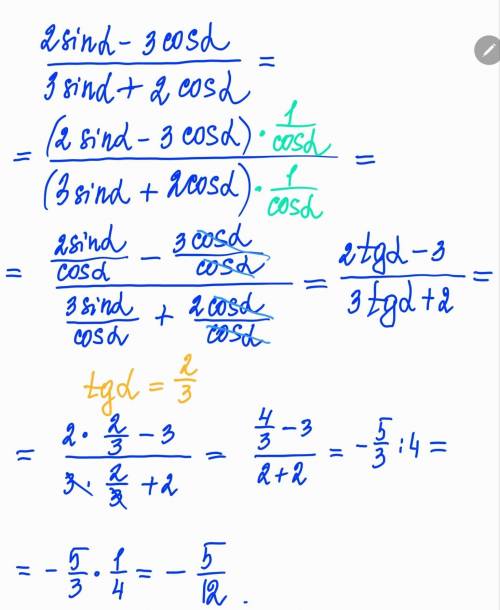 (2sinα − 3cosα)/(3sinα + 2cosα) =
= ((2sinα − 3cosα) · 1/cosα)/((3sinα + 2cosα) · 1/cosα) =
= (2sinα/cosα − 3cosα/cosα)/(3sinα/cosα + 2cosα/cosα) = (2tgα − 3)/(3tgα + 2) =
tgα = 2/3
= (2 · 2/3 − 3)/(3 · 2/3 + 2) = (4/3 − 3)/(2 + 2) = −5/3 : 4 =
= −5/3 · 1/4 = −5/12.